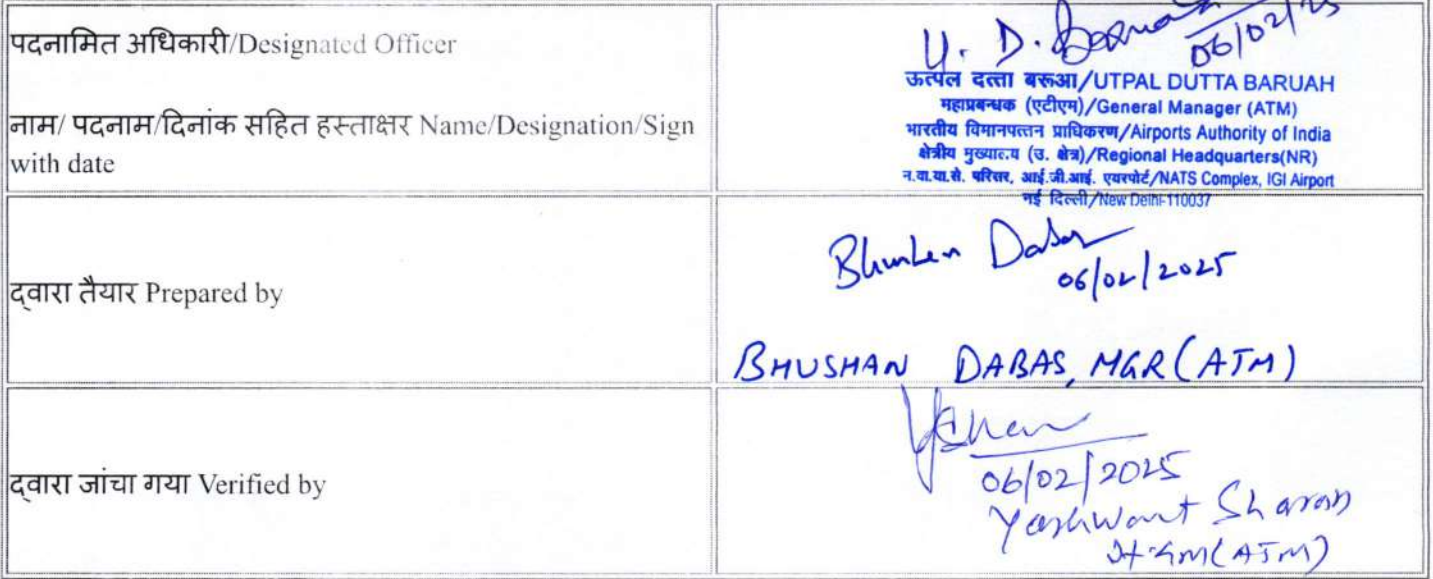 पदनामित अधिकारी/Designated Officer
नाम/ पदनाम/दिनांक सहित हस्ताक्षर Name/Designation/Sign
with date
U. D. Baruah
06/02/25
ऊत्पल दत्ता बरूआ/UTPAL DUTTA BARUAH
महाप्रबन्धक (एटीएम)/General Manager (ATM)
भारतीय विमानपत्तन प्राधिकरण/Airports Authority of India
क्षेत्रीय मुख्यालय (उ. क्षेत्र)/Regional Headquarters(NR)
न.वा.या.से. परिसर, आई.जी.आई. एयरपोर्ट/NATS Complex, IGI Airport
नई दिल्ली/New Delhi-110037
द्वारा तैयार Prepared by
Bhushan Dabas
06/02/2025
BHUSHAN DABAS, MGR(ATM)
द्वारा जांचा गया Verified by
06/02/2025
Yashwant Sharan
GM(ATM)